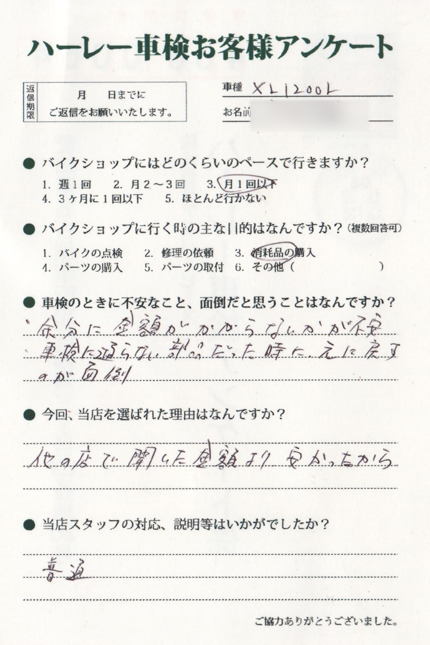 ハーレー車検お客様アンケート
返信期限
月　日までに
ご返信をお願いいたします。
車種 XL1200L
お名前
● バイクショップにはどのくらいのペースで行きますか？
1. 週1回　2. 月2～3回　3. 月1回以下
4. 3ヶ月に1回以下　5. ほとんど行かない
● バイクショップに行く時の主な目的はなんですか？（複数回答可）
1. バイクの点検　2. 修理の依頼　3. 消耗品の購入
4. パーツの購入　5. パーツの取付　6. その他（　　　）
● 車検のときに不安なこと、面倒だと思うことはなんですか？
・余分に金額がかからないかが不安
・車検に通らない部品だった時に、元に戻す
のが面倒
● 今回、当店を選ばれた理由はなんですか？
他の店で聞いた金額より安かったから
● 当店スタッフの対応、説明等はいかがでしたか？
普通
ご協力ありがとうございました。